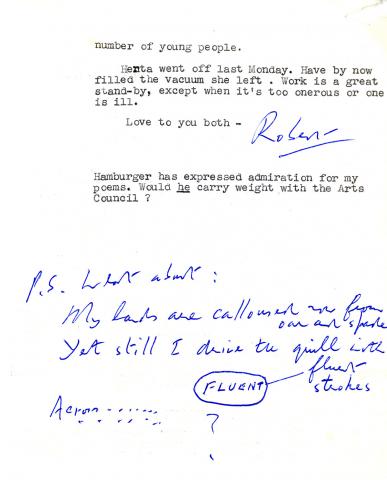 number of young people.
Henta went off last Monday. Have by now
filled the vacuum she left . Work is a great
stand-by, except when it's too onerous or one
is ill.
Love to you both -
Robert
Hamburger has expressed admiration for my
poems. Would he carry weight with the Arts
Council ?
P.S. What about :
My hands are calloused now from
oar and spade
Yet still I drive the quill with
fluent
strokes
FLUENT
Across.......
?